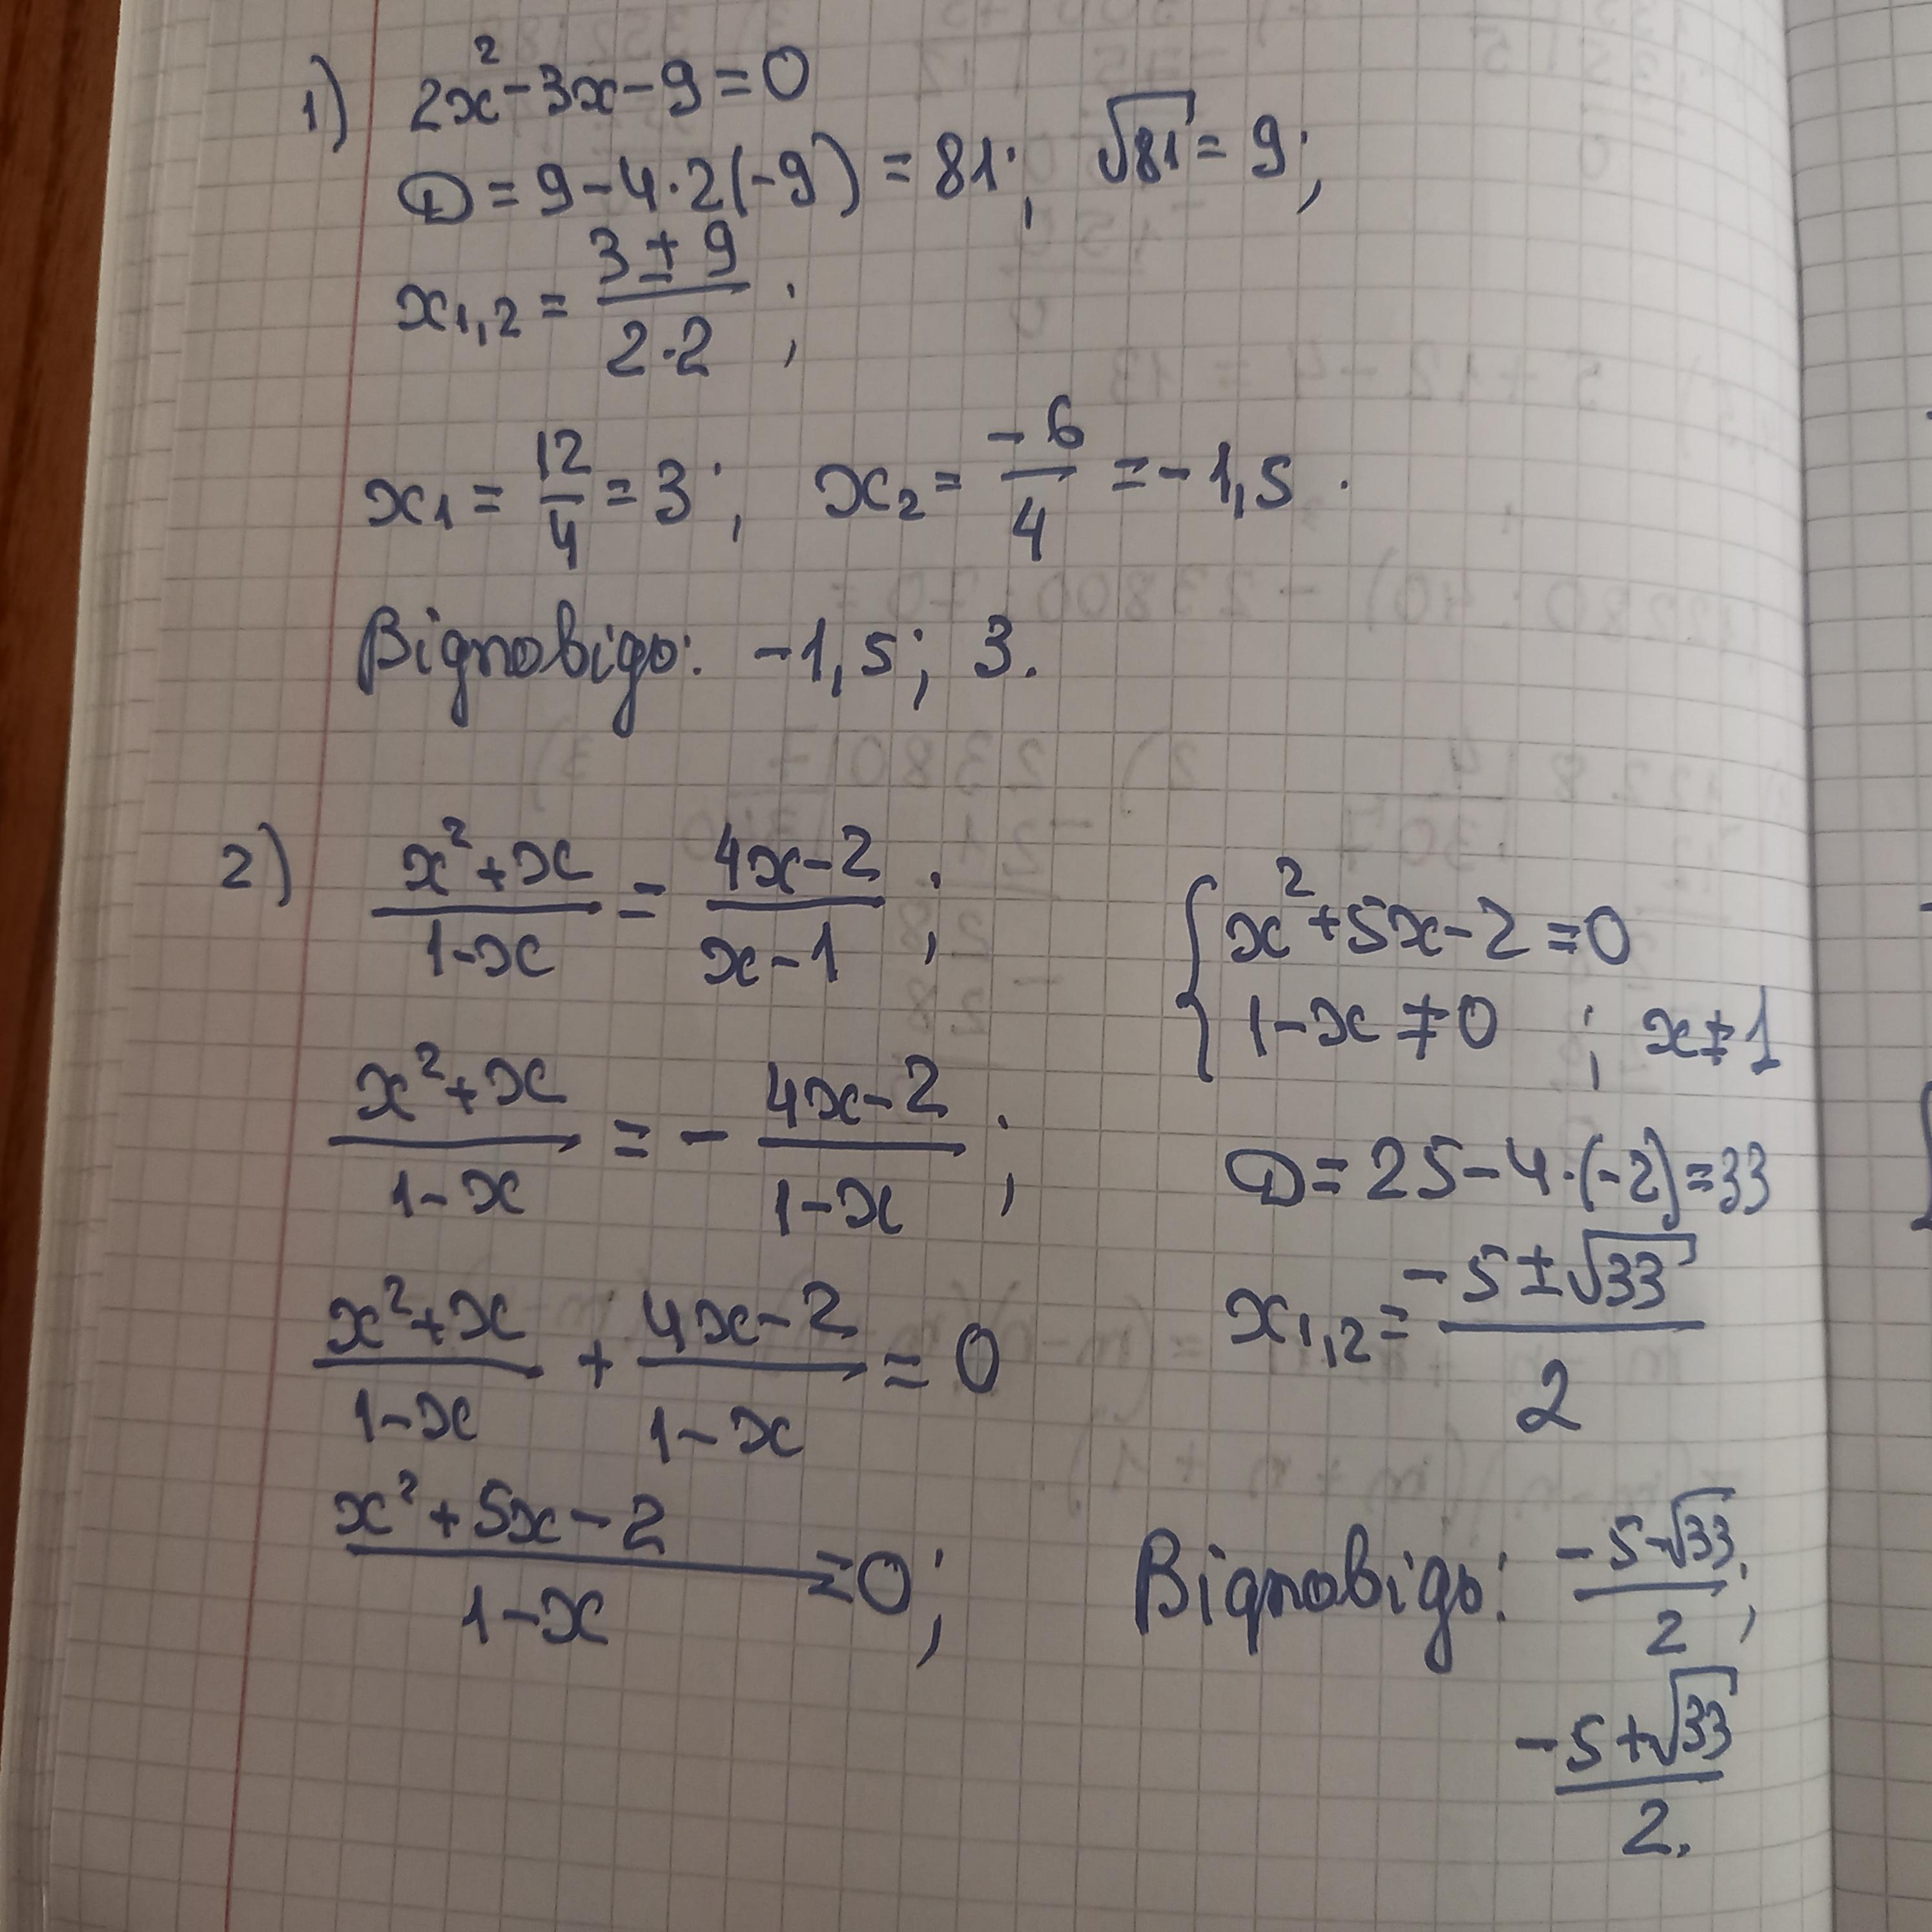 1) 2x² - 3x - 9 = 0
D = 9 - 4·2(-9) = 81; √81 = 9;
x₁,₂ = (3 ± 9)/(2·2);
x₁ = 12/4 = 3; x₂ = -6/4 = -1,5.
Відповідь: -1,5; 3.
2) (x² + x)/(1 - x) = (4x - 2)/(x - 1);
(x² + x)/(1 - x) = - (4x - 2)/(1 - x);
(x² + x)/(1 - x) + (4x - 2)/(1 - x) = 0
(x² + 5x - 2)/(1 - x) = 0;
{ x² + 5x - 2 = 0
1 - x ≠ 0; x ≠ 1
D = 25 - 4·(-2) = 33
x₁,₂ = (-5 ± √33)/2
Відповідь: (-5 - √33)/2;
(-5 + √33)/2.